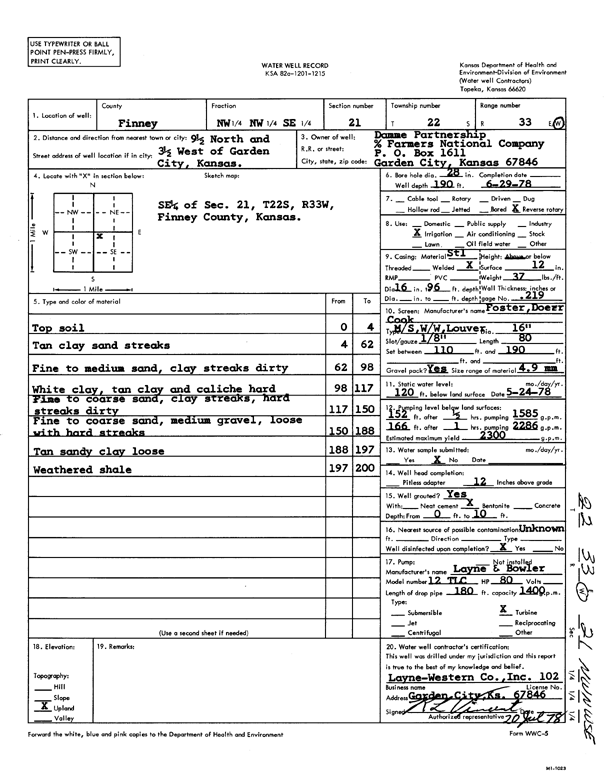 USE TYPEWRITER OR BALL
POINT PEN-PRESS FIRMLY,
PRINT CLEARLY.
WATER WELL RECORD
KSA 82a-1201-1215
Kansas Department of Health and
Environment-Division of Environment
(Water well Contractors)
Topeka, Kansas 66620
1. Location of well:
County
Finney
Fraction
NW 1/4 NW 1/4 SE 1/4
Section number
21
Township number
T 22 S
Range number
R 33 E/W
2. Distance and direction from nearest town or city: 9½ North and
Street address of well location if in city: 3½ West of Garden
City, Kansas.
3. Owner of well: Damme Partnership
R.R. or street: % Farmers National Company
P. O. Box 1611
City, state, zip code: Garden City, Kansas 67846
4. Locate with "X" in section below:
Sketch map:
N
NW NE
W X E
SW SE
S
1 Mile
1 Mile
SE¼ of Sec. 21, T22S, R33W,
Finney County, Kansas.
6. Bore hole dia. 28 in. Completion date
Well depth 190 ft. 6-29-78
7. Cable tool Rotary Driven Dug
Hollow rod Jetted Bored X Reverse rotary
8. Use: Domestic Public supply Industry
X Irrigation Air conditioning Stock
Lawn Oil field water Other
9. Casing: Material Stl Height: Above or below
Threaded Welded X Surface 12 in.
RMP PVC Weight 37 lbs./ft.
Dia. 16 in. 96 ft. depth Wall Thickness: inches or
Dia. in. to ft. depth gage No. .219
5. Type and color of material From To
Top soil 0 4
Tan clay sand streaks 4 62
Fine to medium sand, clay streaks dirty 62 98
White clay, tan clay and caliche hard 98 117
Fine to coarse sand, clay streaks, hard
streaks dirty 117 150
Fine to coarse sand, medium gravel, loose
with hard streaks 150 188
Tan sandy clay loose 188 197
Weathered shale 197 200
(Use a second sheet if needed)
10. Screen: Manufacturer's name Foster, Doerr
Cook
Type M/S, W/W, Louver Dia. 16"
Slot/gauze 1/8" Length 80
Set between 110 ft. and 190 ft.
ft. and ft.
Gravel pack? Yes Size range of material 4.9 mm
11. Static water level: mo./day/yr.
120 ft. below land surface Date 5-24-78
12. Pumping level below land surfaces:
152 ft. after ½ hrs. pumping 1585 g.p.m.
166 ft. after 1 hrs. pumping 2286 g.p.m.
Estimated maximum yield 2300 g.p.m.
13. Water sample submitted: mo./day/yr.
Yes X No Date
14. Well head completion:
Pitless adapter 12 Inches above grade
15. Well grouted? Yes
With: Neat cement X Bentonite Concrete
Depth: From 0 ft. to 10 ft.
16. Nearest source of possible contamination: Unknown
ft. Direction Type
Well disinfected upon completion? X Yes No
17. Pump: Not installed
Manufacturer's name Layne & Bowler
Model number 12 TLC HP 80 Volts
Length of drop pipe 180 ft. capacity 1400 g.p.m.
Type:
Submersible X Turbine
Jet Reciprocating
Centrifugal Other
18. Elevation:
Topography:
Hill
Slope
X Upland
Valley
19. Remarks:
20. Water well contractor's certification:
This well was drilled under my jurisdiction and this report
is true to the best of my knowledge and belief.
Layne-Western Co., Inc. 102
Business name License No.
Address Garden City, Ks. 67846
Signed R L Vincent Date 20 Jul 78
Authorized representative
Forward the white, blue and pink copies to the Department of Health and Environment
Form WWC-5
MI-1023
T 22 R 33 W Sec 21 1/4 1/4 1/4 NWNWSE